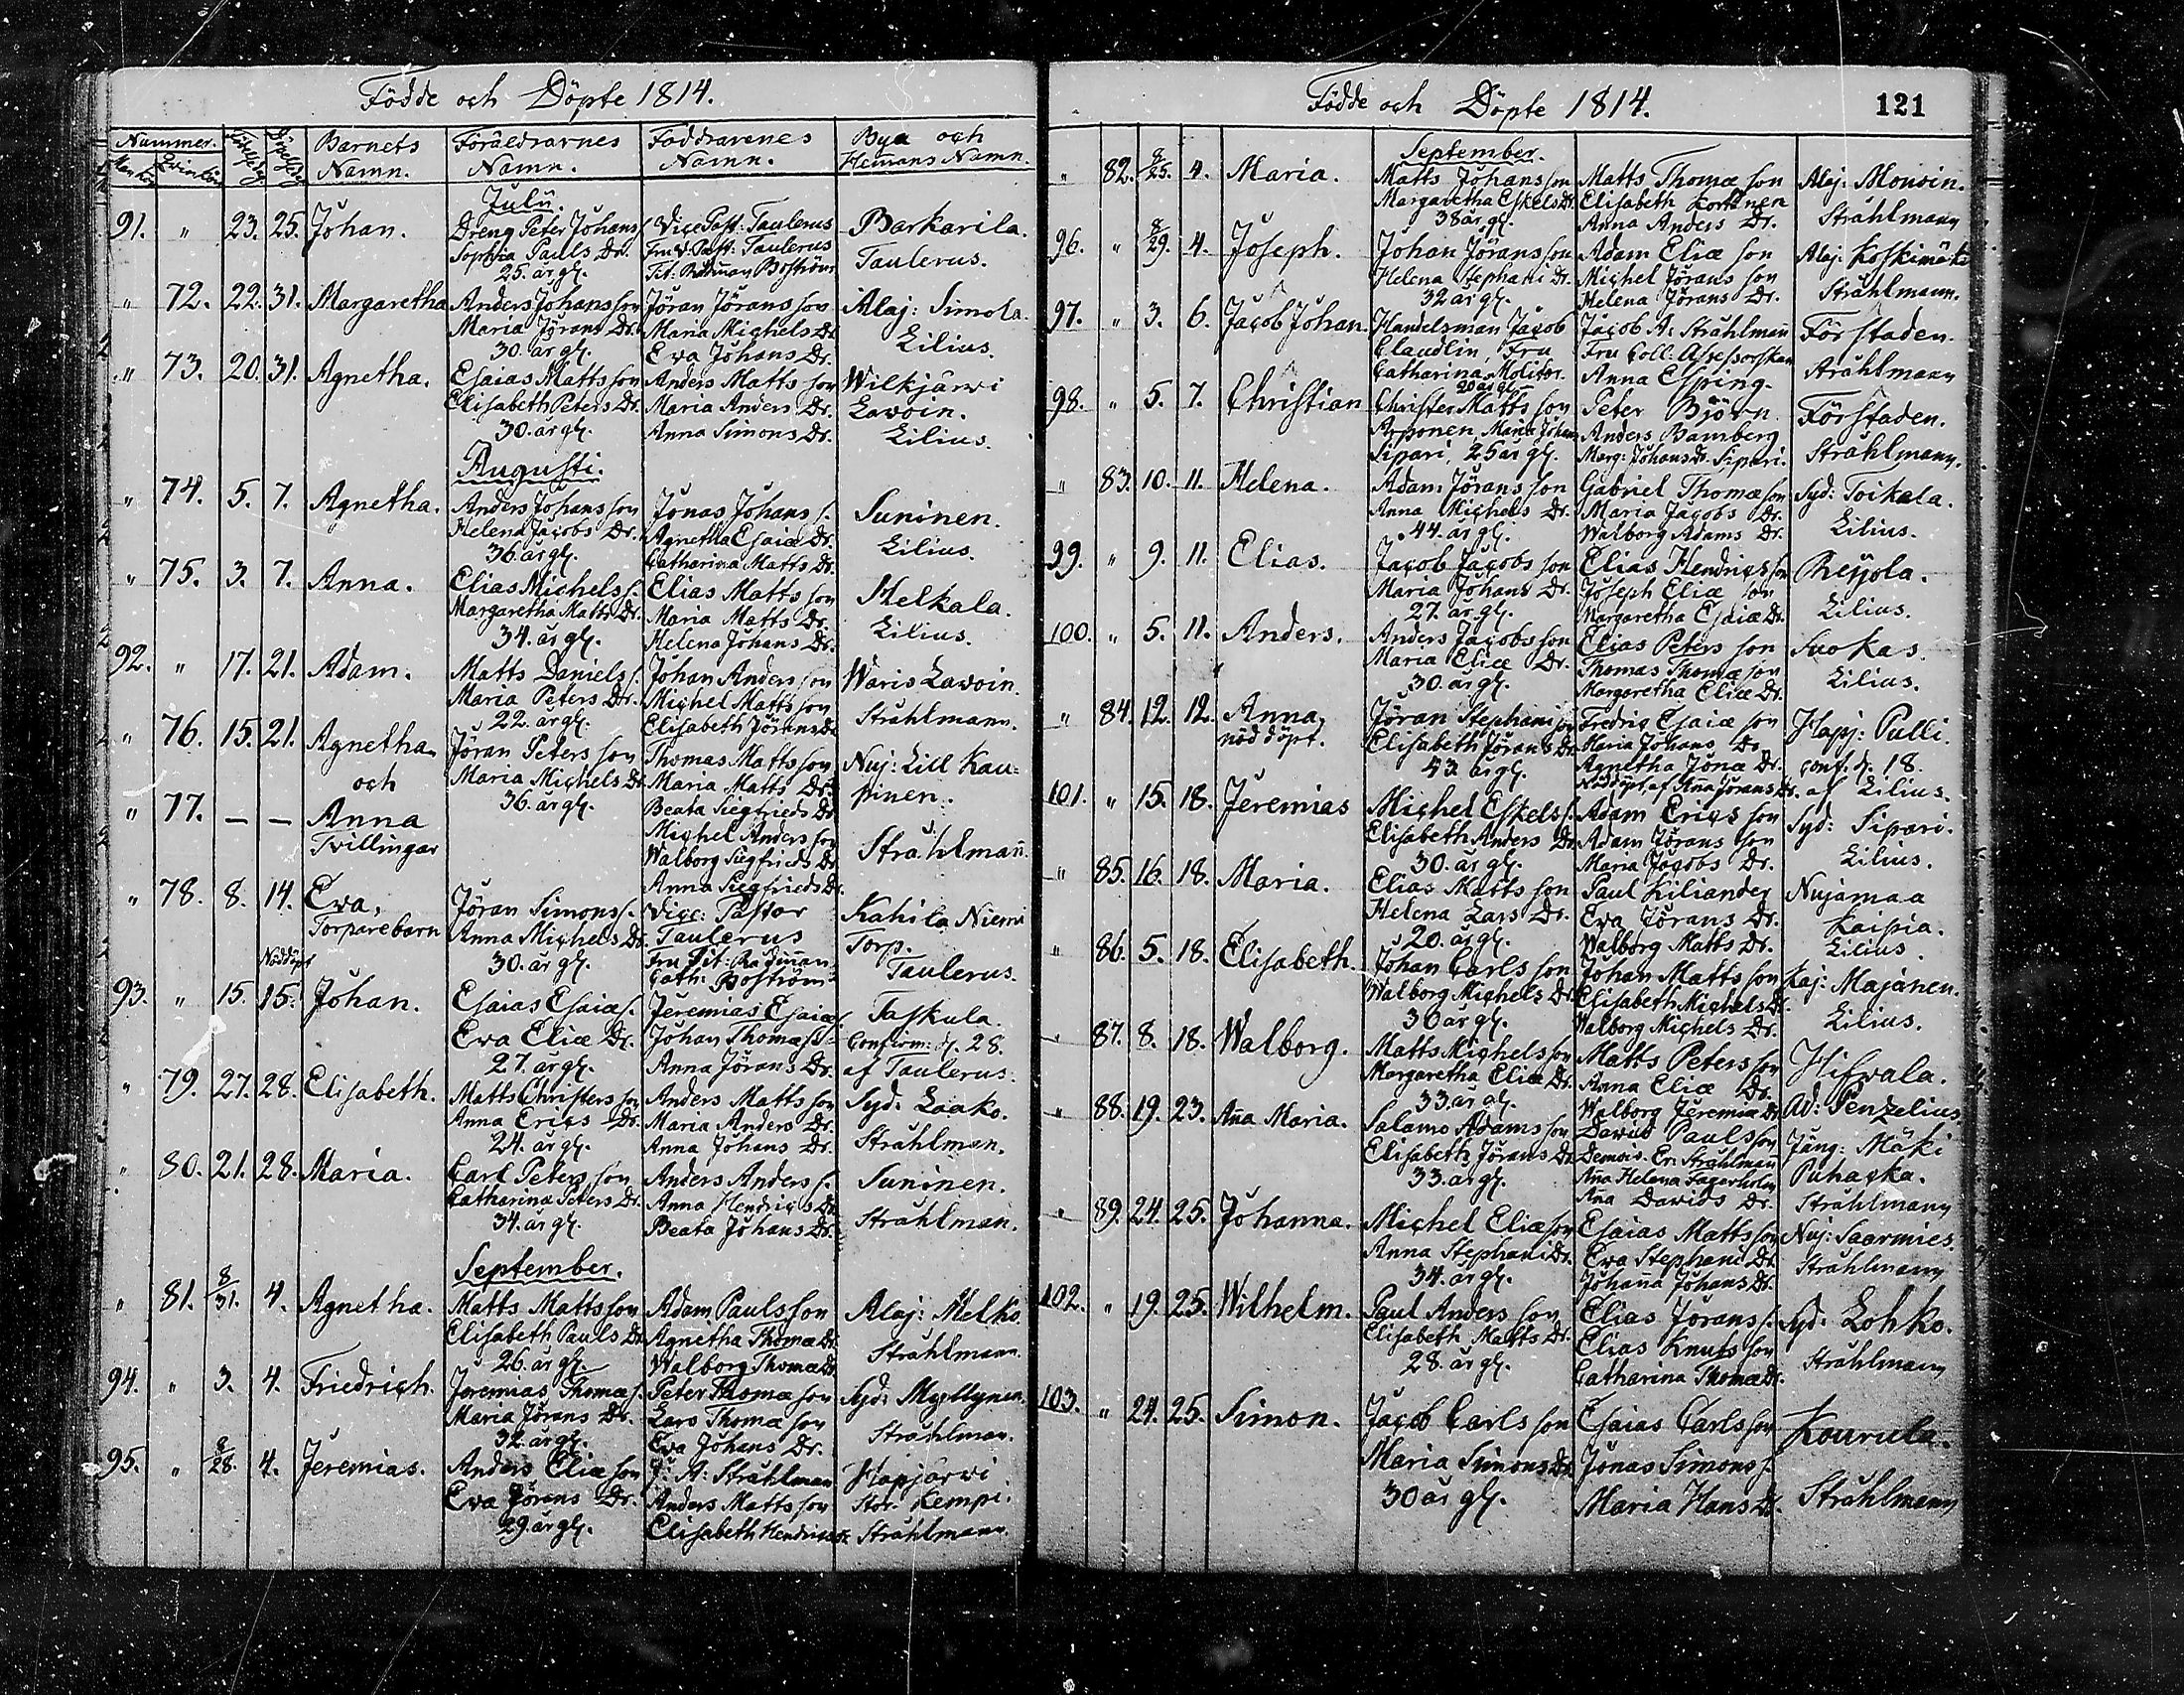 Födde och Döpte 1814.
Nummer. Barnets Föräldrarnes Faddrarenes Bya och
Namn. Namn. Namn. Hem̄ans Namn.
Julii.
91. " 23. 25. Johan. Dreng Peter Johans Vice Past: Taulerus Barkarila.
Sophia Pauls Dr. Fru V. Past: Taulerus Taulerus.
25. år gl. Tit: Rådman Boström
" 72. 22. 31. Margaretha Anders Johans son Jöran Jörans son Alaj: Simola.
Maria Jörans Dr. Maria Michels Dr. Lilius.
30. år gl. Eva Johans Dr.
" 73. 20. 31. Agnetha. Esaias Matts son Anders Matts son Wilkjärwi
Elisabeth Peters Dr. Maria Anders Dr. Lawoin.
30. år gl. Anna Simons Dr. Lilius.
Augusti.
" 74. 5. 7. Agnetha. Anders Johans son Jonas Johans s. Suninen.
Helena Jacobs Dr. Agnetha Esaiæ Dr. Lilius.
36. år gl. Catharina Matts Dr.
" 75. 3. 7. Anna. Elias Michels s. Elias Matts son Melkala.
Margaretha Matts Dr. Maria Matts Dr. Lilius.
34. år gl. Helena Johans Dr.
92. " 17. 21. Adam. Matts Daniels s. Johan Anders son Waris Lawoin.
Maria Peters Dr. Michel Matts son Stråhlmann.
22. år gl. Elisabeth Jörans Dr.
" 76. 15. 21. Agnetha Jöran Peters son Thomas Matts son Nuj: Lill Kau=
och Maria Michels Dr. Maria Matts Dr. pinen.
36. år gl. Beata Siegfrieds Dr.
" 77. — — Anna Michel Anders son Stråhlman̄.
Tvillingar Walborg Siegfrieds Dr.
Anna Siegfrieds Dr.
" 78. 8. 14. Eva, Jöran Simons s. Vice: Pastor Kahila Niemi
Torparebarn Anna Michels Dr. Taulerus Torp.
30. år gl. Fru Tit: Rådman Taulerus.
Cath: Boström
Nöddöpt
93. " 15. 15. Johan. Esaias Esaiæ s. Jeremias Esaiæ s. Taskula.
Eva Eliæ Dr. Johan Thomæ s. Confirm: d. 28.
27. år gl. Anna Jörans Dr. af Taulerus.
" 79. 27. 28. Elisabeth. Matts Christers son Anders Matts son Syd: Laako.
Anna Erics Dr. Maria Anders Dr. Stråhlman.
24. år gl. Anna Johans Dr.
" 80. 21. 28. Maria. Carl Peters son Anders Anders s. Suninen.
Catharina Peters Dr. Anna Hendrics Dr. Stråhlman.
34. år gl. Beata Johans Dr.
September.
" 81. 8/31. 4. Agnetha. Matts Matts son Adam Pauls son Alaj: Melko.
Elisabeth Pauls Dr. Agnetha Thomæ Dr. Stråhlmann.
26. år gl. Walborg Thomæ Dr.
94. " 3. 4. Friedrich. Jeremias Thomæ s. Peter Thomæ son Syd: Myllynen.
Maria Jörans Dr. Lars Thomæ son Stråhlman.
32. år gl. Eva Johans Dr.
95. " 8/28. 4. Jeremias. Anders Eliæ son J: A: Stråhlman Hapjärwi
Eva Jörans Dr. Anders Matts son Stor. Kempi.
29. år gl. Elisabeth Hendrics Dr. Stråhlmann.
Födde och Döpte 1814. 121
September.
" 82. 8/25. 4. Maria. Matts Johans son Matts Thomæ son Alaj: Mousin.
Margaretha Eskels Dr. Elisabeth Korttinen Stråhlmann
38 år gl. Anna Anders Dr.
96. " 8/29. 4. Joseph. Johan Jörans son Adam Eliæ son Alaj: Koskimäki
Helena Stephani Dr. Michel Jörans son Stråhlmann.
32 år gl. Helena Jörans Dr.
97. " 3. 6. Jacob Johan. Handelsman Jacob Jacob A: Stråhlman̄ Förstaden.
Claudlin, Fru Fru Coll: Assessorskan Stråhlmann
Catharina Molitor. Anna Esping.
20 år gl.
98. " 5. 7. Christian Christer Matts son Peter Björn Förstaden.
Arponen, Maria Johans Anders Bamberg Stråhlmann.
Sipari, 25 år gl. Marg: Johans Dr. Sipari.
" 83. 10. 11. Helena. Adam Jörans son Gabriel Thomæ son Syd: Toikala.
Anna Michels Dr. Maria Jacobs Dr. Lilius.
44. år gl. Walborg Adams Dr.
99. " 9. 11. Elias. Jacob Jacobs son Elias Hendrics son Reijola.
Maria Johans Dr. Joseph Eliæ son Lilius.
27. år gl. Margaretha Esaiæ Dr.
100. " 5. 11. Anders. Anders Jacobs son Elias Peters son Suokas.
Maria Eliæ Dr. Thomas Thomæ son Lilius.
30. år gl. Margaretha Eliæ Dr.
" 84. 12. 12. Anna, Jöran Stephani son Fredric Esaiæ son Hapj: Pulli.
nöd döpt. Elisabeth Jörans Dr. Maria Johans Dr. conf. d. 18.
43. år gl. Agnetha Jonæ Dr. af Lilius.
Nöddöpt af An̄a Jörans Dr.
101. " 15. 18. Jeremias Michel Eskels s. Adam Erics son Syd: Sipari.
Elisabeth Anders Dr. Adam Jörans son Lilius.
30. år gl. Maria Jacobs Dr.
" 85. 16. 18. Maria. Elias Matts son Paul Kiliander Nujamaa
Helena Lars Dr. Eva Jörans Dr. Kaipia.
20. år gl. Walborg Matts Dr. Lilius.
" 86. 5. 18. Elisabeth. Johan Carls son Johan Matts son Kaj: Majanen.
Walborg Michels Dr. Elisabeth Michels Dr. Lilius.
30 år gl. Walborg Michels Dr.
" 87. 8. 18. Walborg. Matts Michels son Matts Peters son Hifvala.
Margaretha Eliæ Dr. Anna Eliæ Dr. Ad: Penzelius.
33. år gl. Walborg Jeremiæ Dr.
" 88. 19. 23. An̄a Maria. Salamo Adams son David Pauls son Jäng: Mäki
Elisabeth Jörans Dr. Demois. Er: Stråhlman̄ Puhacka.
33. år gl. An̄a Helena Fagerholm Stråhlmann
An̄a Dawids Dr.
" 89. 24. 25. Johanna. Michel Eliæ son Esaias Matts son Nuj: Saarmies.
Anna Stephani Dr. Eva Stephani Dr. Stråhlmann
34. år gl. Johan̄a Johans Dr.
102. " 19. 25. Wilhelm. Paul Anders son Elias Jörans s. Syd: Lohko.
Elisabeth Matts Dr. Elias Knuts son Stråhlmann
28. år gl. Catharina Thomæ Dr.
103. " 24. 25. Simon. Jacob Carls son Esaias Carls son Kourula.
Maria Simons Dr. Jonas Simons s. Stråhlmann
30 år gl. Maria Hans Dr.